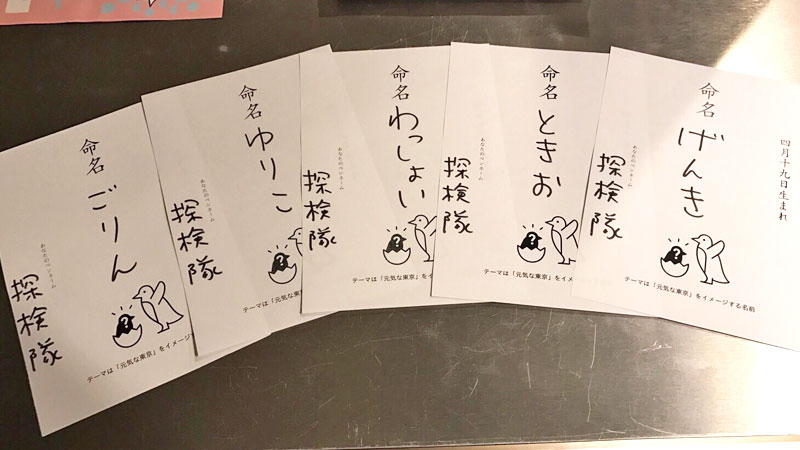 四月十九日生まれ
命名 げんき
あなたのペンネーム
探検隊
?
テーマは「元気な東京」をイメージする名前
命名 ときお
あなたのペンネーム
探検隊
?
テーマは「元気な東京」をイメ
命名 わっしょい
あなたのペンネーム
探検隊
?
テーマは「元気な東京」をイメー
命名 ゆりこ
あなたのペンネーム
探検隊
?
テーマは「元気な東京
命名 ごりん
あなたのペンネーム
探検隊
?
テーマは「元気な東京」をイメージす